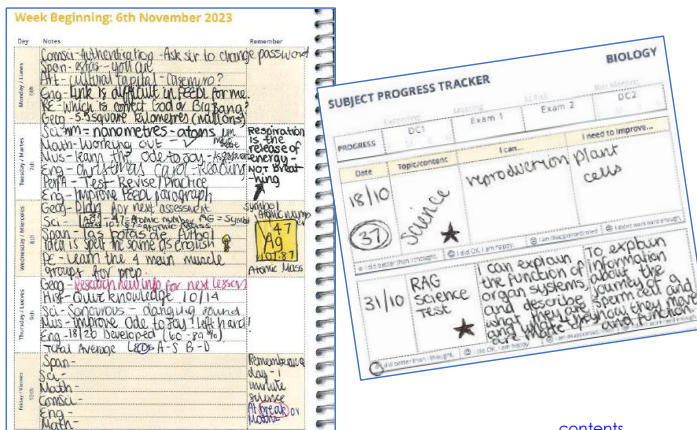 Week Beginning: 6th November 2023
Day Notes Remember
Monday / Lunes
6th
Comsci - Authentication - Ask sir to change password
Span - estas - you are
Art - cultural capital - Casemiro?
Eng - Link is difficult in PEEDL for me.
RE - which is correct God or Big Bang?
Geog - 5.5 square kilometres (nations)
Tuesday / Martes
7th
Sci - nm = nanometres - atoms
Math - Working out -
Mus - learn the ode to joy -
Eng - Christmas Carol - Reading
PerfA - Test - Revise / Practice
Eng - Improve PEEDL paragraph
Respiration
is the
release of
energy -
not Breat
-hing
Wednesday / Miercoles
8th
Geog - Plan for next assessment
Sci - 47 = Atomic number AG = Symbol
107.87 = Atomic Mass
Span - las papas are plural
idea is spelt the same as english
PE - Learn the 4 main muscle
groups for prep.
Symbol
Atomic number
47
Ag
107.87
Atomic Mass
Thursday / Jueves
9th
Geog - Research new info for next lesson
Hist - Quiz knowledge 10/14
Sci - Sonorous - danging sound
Mus - Improve Ode to joy! left hand!
Eng - 18/26 Developed (60 - 89%)
Total Average A-S B-D
Friday / Viernes
10th
Span -
Sci -
Math -
Comsci -
Eng -
Math -
Remembrance
day - 1
minute
silence
At break or
Maths
BIOLOGY
SUBJECT PROGRESS TRACKER
PROGRESS DC1 Exam 1 Exam 2 DC2
Date Topic/content I can... I need to improve...
18/10
37
Science
reproduction
plant
cells
31/10
RAG
Science
Test
I can explain
the function of
organ systems
and describe
what they are
To explain
information
about the
journey of a
sperm cell and
and function
I did better than I thought. I did OK, I am happy
contents